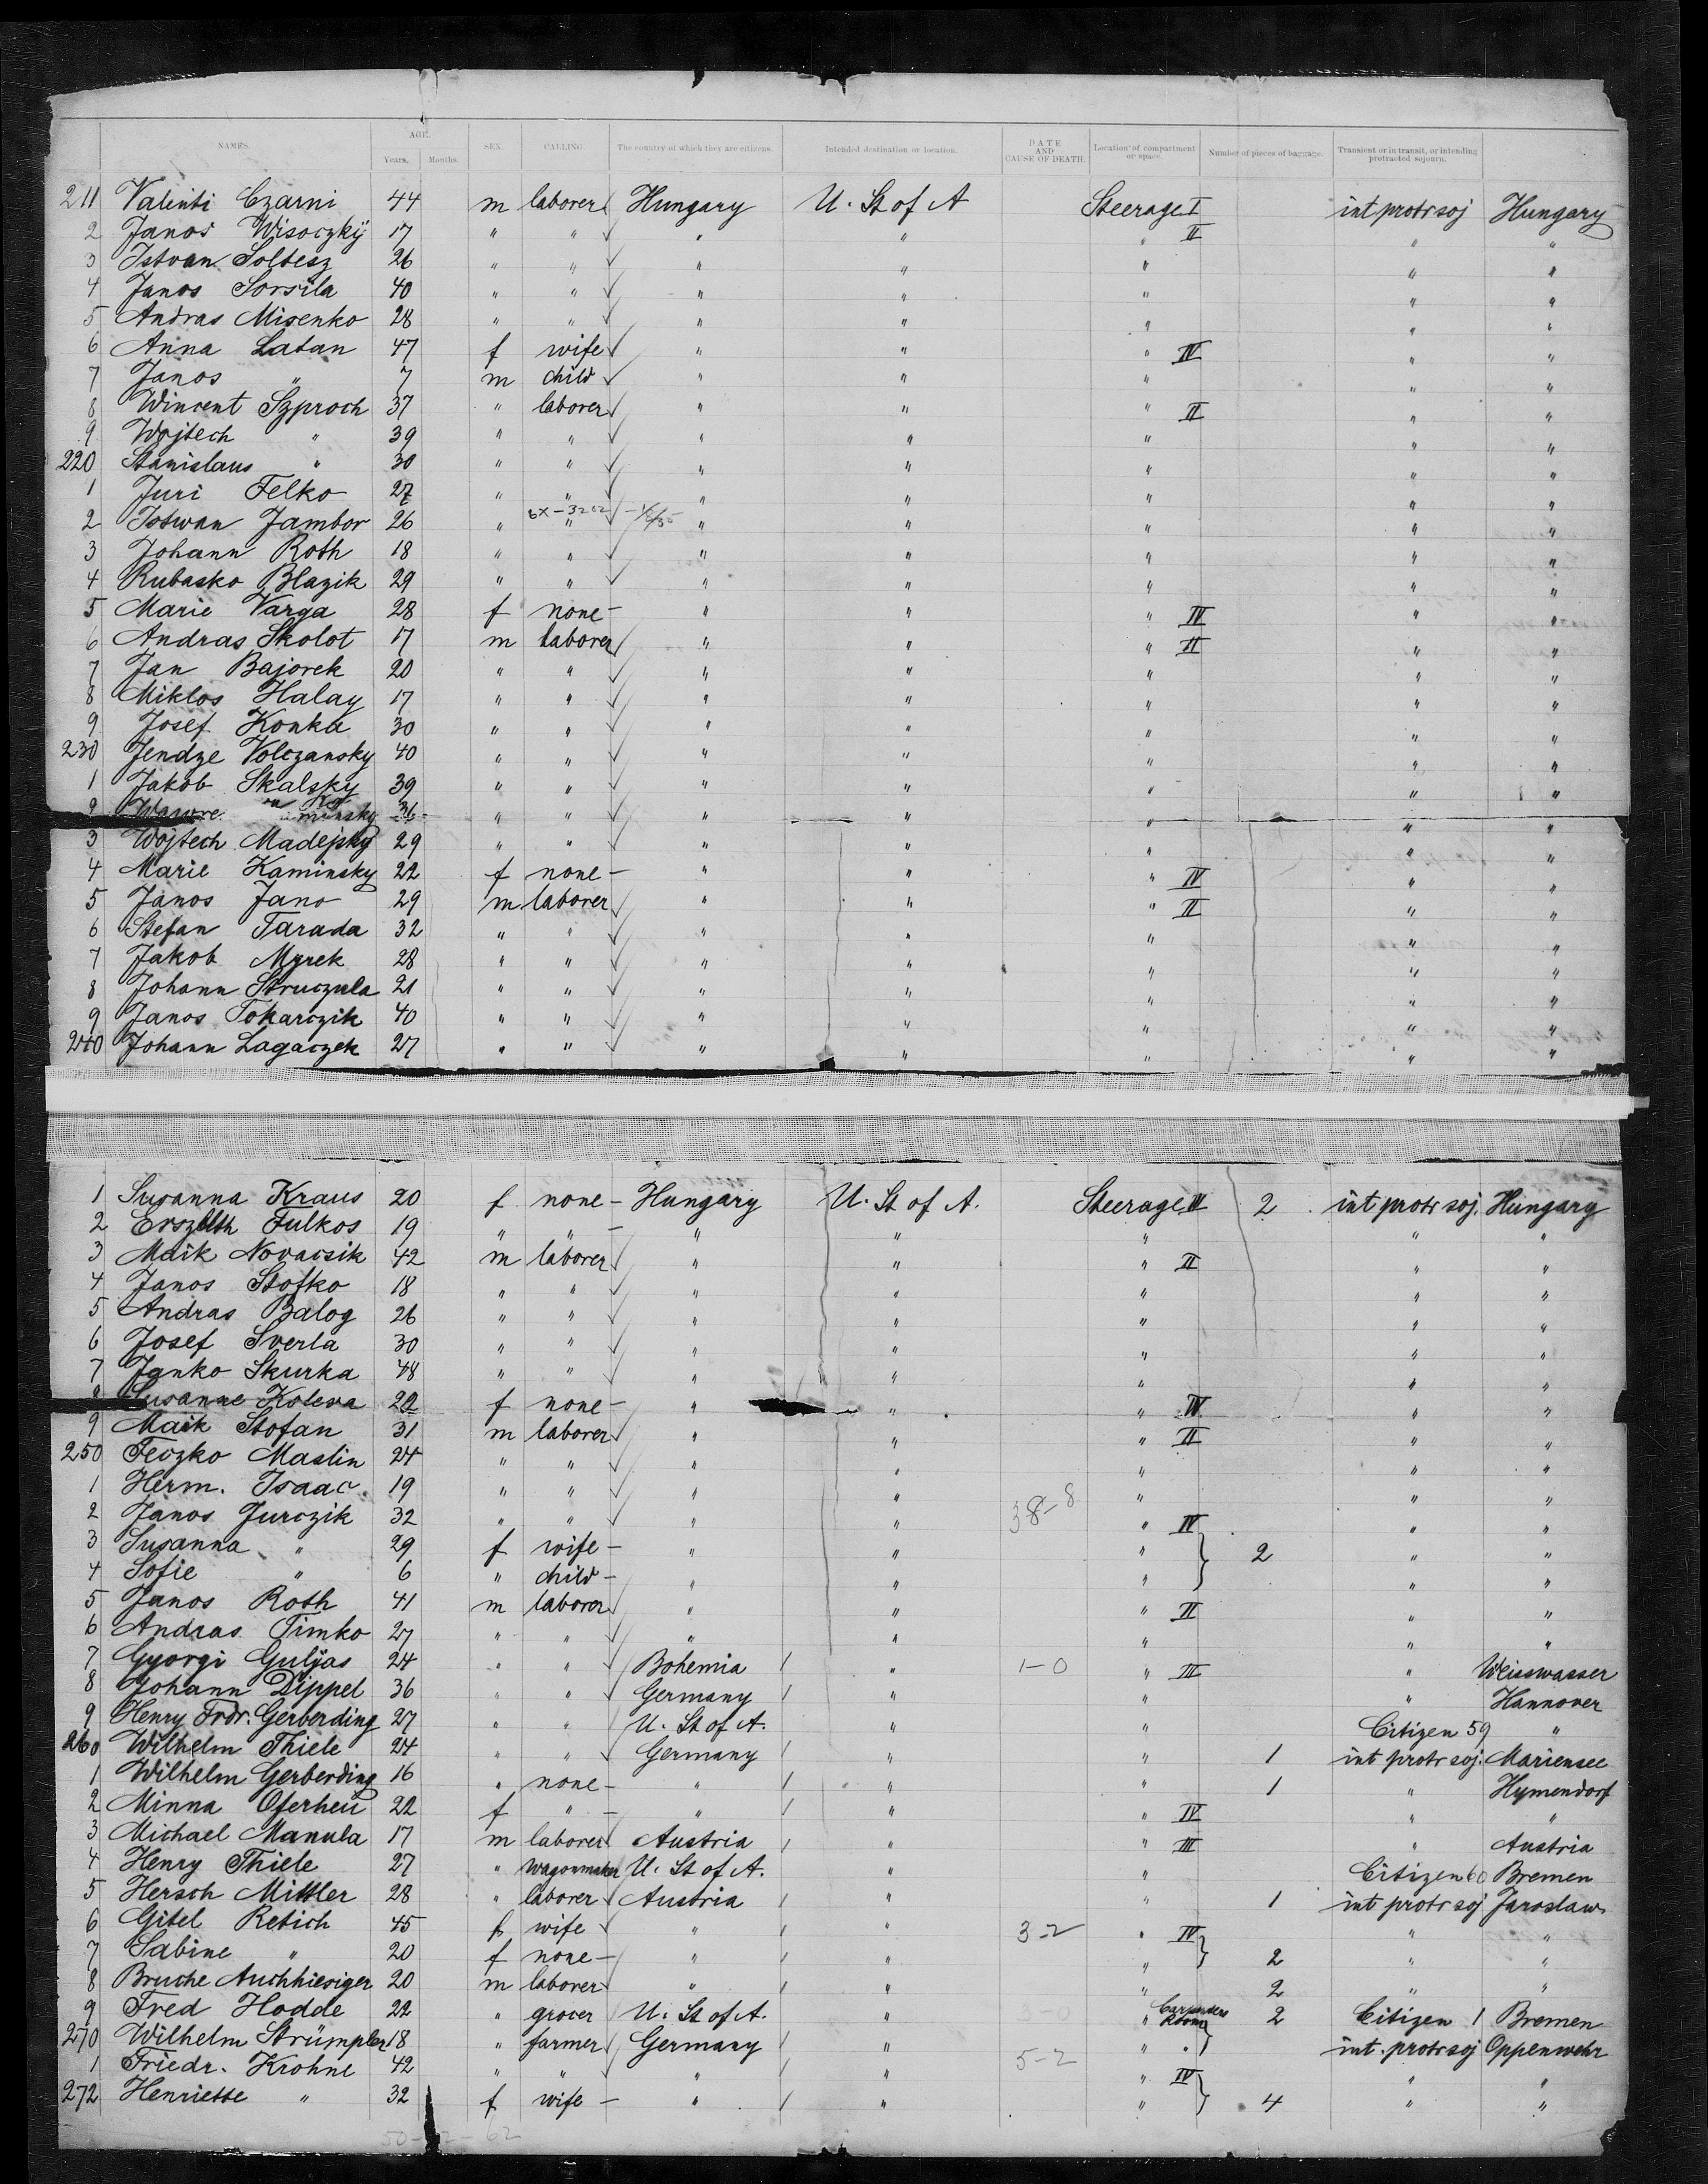 NAMES. AGE. Years. Months. SEX. CALLING. The country of which they are citizens. Intended destination or location. DATE AND CAUSE OF DEATH. Location of compartment or space. Number of pieces of baggage. Transient or in transit, or intending protracted sojourn.
211 Valenti Czarni 44 m laborer Hungary U. St of A Steerage I int protr soj Hungary
2 Janos Wisoczkÿ 17 " " " " " II " "
3 Istvan Soltesz 26 " " " " " " "
4 Janos Sorsila 40 " " " " " " "
5 Andras Misenko 28 " " " " " " "
6 Anna Latan 47 f wife " " " IV " "
7 Janos " 7 m child " " " " "
8 Wincent Szproch 37 " laborer " " " II " "
9 Wojtech " 39 " " " " " " "
220 Stanislaus " 30 " " " " " " "
1 Juri Felko 27 " " " " " " "
2 Istwan Jambor 26 " " " " " " "
3 Johann Roth 18 " " " " " " "
4 Rubasko Blazik 29 " " " " " " "
5 Marie Varga 28 f none - " " " IV " "
6 Andras Skolot 17 m laborer " " " II " "
7 Jan Bajorek 20 " " " " " " "
8 Miklos Halay 17 " " " " " " "
9 Josef Konka 30 " " " " " " "
230 Jendze Volczansky 40 " " " " " " "
1 Jakob Skalsky 39 " " " " " " "
36 " " " " " " "
3 Wojtech Madejsky 29 " " " " " " "
4 Marie Kaminsky 22 f none - " " " IV " "
5 Janos Jano 29 m laborer " " " II " "
6 Stefan Tarada 32 " " " " " " "
7 Jakob Myrek 28 " " " " " " "
8 Johann Struczula 21 " " " " " " "
9 Janos Tokarczik 40 " " " " " " "
240 Johann Lagaczek 27 " " " " " " "
1 Susanna Kraus 20 f none - Hungary U. St of A. Steerage IV 2 int protr soj. Hungary
2 Erszbth Fulkos 19 " " - " " " " "
3 Maik Novacsik 42 m laborer " " " II " "
4 Janos Stofko 18 " " " " " " "
5 Andras Balog 26 " " " " " " "
6 Josef Sverla 30 " " " " " " "
7 Janko Skurka 48 " " " " " " "
Susanne Koleva 22 f none - " " " IV " "
9 Maik Stofan 31 m laborer " " " II " "
250 Feczko Maslin 24 " " " " " " "
1 Herm. Isaac. 19 " " " " " " "
2 Janos Jurczik 32 " " " " 38-8 " IV " "
3 Susanna " 29 f wife - " " " 2 " "
4 Sofie " 6 " child - " " " " "
5 Janos Roth 41 m laborer " " " II " "
6 Andras Timko 27 " " " " " " "
7 Gyorgi Guljas 24 " " Bohemia " 1-0 " III " Weisswasser
8 Johann Dippel 36 " " Germany " " " Hannover
9 Henry Frdr. Gerberding 27 " " U. St of A. " " Citizen 59 "
260 Wilhelm Thiele 24 " " Germany " " 1 int protr soj. Mariensee
1 Wilhelm Gerberding 16 " none - " " " 1 " Hymendorf
2 Minna Oferheu 22 f " - " " " IV " "
3 Michael Manula 17 m laborer Austria " " III " Austria
4 Henry Thiele 27 " wagonmaker U. St of A. " " Citizen 60 Bremen
5 Hersch Mittler 28 " laborer Austria " " 1 int protr soj Jaroslaw
6 Gitel Retich 45 f wife " " 3-2 " IV " "
7 Sabine " 20 f none - " " " 2 " "
8 Bruche Auchhiesiger 20 m laborer " " " 2 " "
9 Fred Hodde 22 " grocer U. St of A. " 3-0 " Carpenders Room 2 Citizen 1 Bremen
270 Wilhelm Strümpler 18 " farmer Germany " " " int. protr soj Oppenwehr
1 Friedr. Krohne 42 " " " " 5-2 " IV " "
272 Henriette " 32 f wife - " " " 4 " "